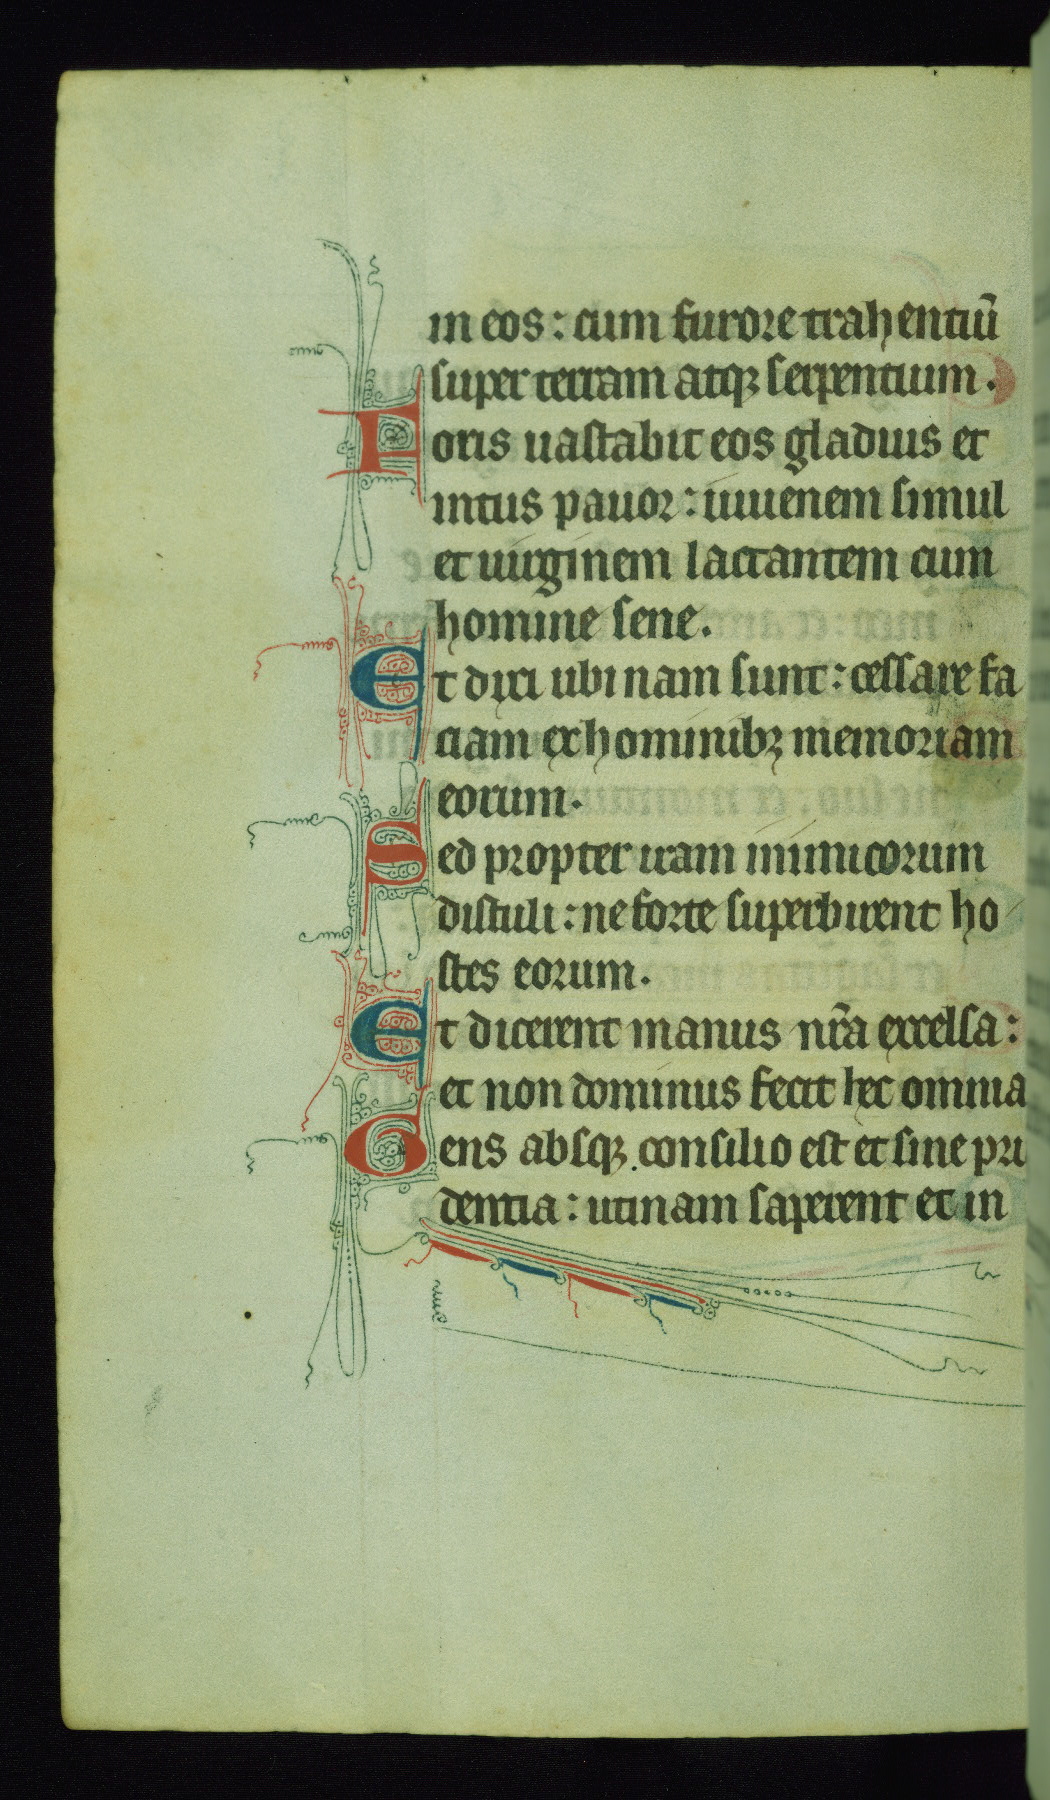 in eos : cum furore trahentiū
super terram atqꝫ serpentium .
Foris uastabit eos gladius et
intus pauor : iuuenem simul
et uirginem lactantem cum
homine sene .
Et dixi ubi nam sunt : cessare fa
ciam ex hominibꝫ memoriam
eorum .
Sed propter iram inimicorum
distuli : ne forte superbirent ho
stes eorum .
Et dicerent manus nr̄a excelsa :
et non dominus fecit hec omnia
Gens absqꝫ consilio est et sine pru
dentia : utinam saperent et in